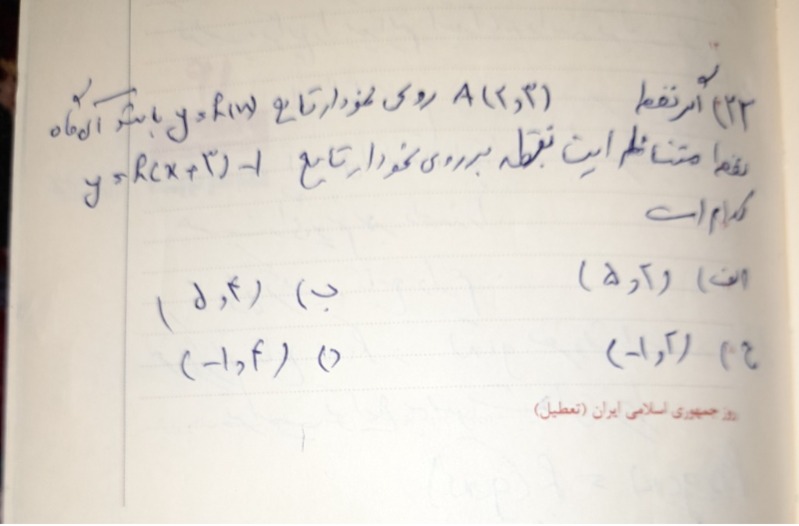 ۲۲) اگر نقطه A(۲,۳) روی نمودار تابع y=f(x) باشد آن‌گاه
نقطه متناظر این نقطه بر روی نمودار تابع y=f(x+۳)-۱
کدام است
الف) (۵,۲) ب) (۵,۴)
ج) (-۱,۲) د) (-۱,۴)
روز جمهوری اسلامی ایران (تعطیل)